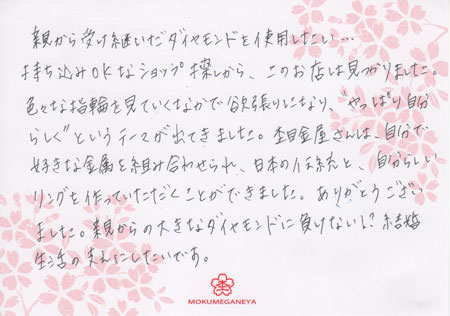 親から受け継いだダイヤモンドを使用したい…
持ち込みOKなショップ探しから、このお店は見つかりました。
色々な指輪を見ていくなかで欲張りになり、"やっぱり自分
らしく"というテーマが出てきました。杢目金屋さんは、自分で
好きな金属を組み合わせられ、日本の伝統と、自分らしい
リングを作っていただくことができました。ありがとうござい
ました。親からの大きなダイヤモンドに負けない!? 結婚
生活の支えにしたいです。
MOKUMEGANEYA